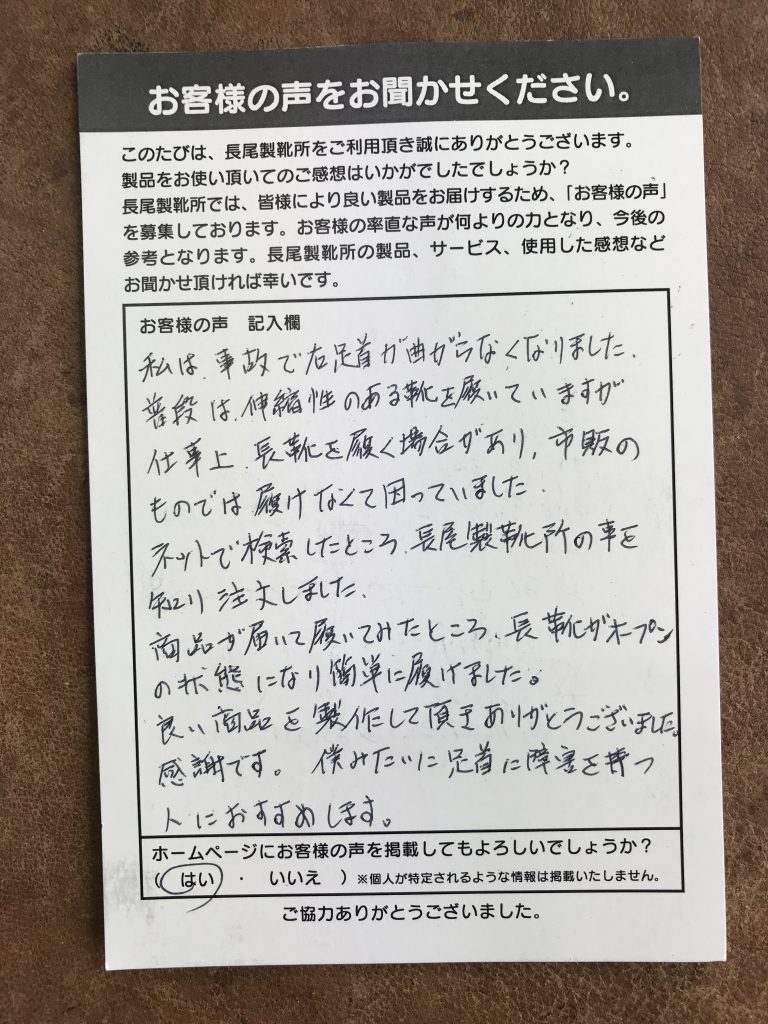 お客様の声をお聞かせください。
このたびは、長尾製靴所をご利用頂き誠にありがとうございます。
製品をお使い頂いてのご感想はいかがでしたでしょうか？
長尾製靴所では、皆様により良い製品をお届けするため、「お客様の声」
を募集しております。お客様の率直な声が何よりの力となり、今後の
参考となります。長尾製靴所の製品、サービス、使用した感想など
お聞かせ頂ければ幸いです。
お客様の声　記入欄
私は、事故で右足首が曲がらなくなりました.
普段は、伸縮性のある靴を履いていますが
仕事上、長靴を履く場合があり、市販の
ものでは履けなくて困っていました.
ネットで検索したところ、長尾製靴所の事を
知り注文しました.
商品が届いて履いてみたところ、長靴がオープン
の状態になり簡単に履けました。
良い商品を製作して頂きありがとうございました。
感謝です。 僕みたいに足首に障害を持つ
人におすすめします。
ホームページにお客様の声を掲載してもよろしいでしょうか？
（　はい　・　いいえ　）※個人が特定されるような情報は掲載いたしません。
ご協力ありがとうございました。